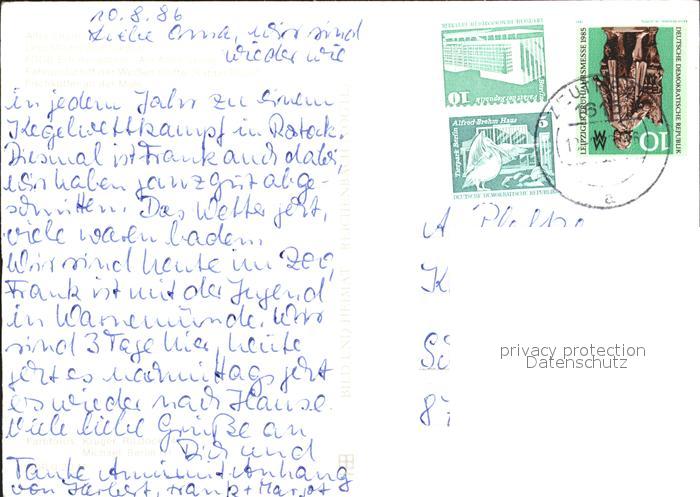 10.8.86
Liebe Oma, wir sind
wieder wie
in jedem Jahr zu einem
Kegelwettkampf in Rostock.
Diesmal ist Frank auch dabei,
wir haben ganz gut abge-
schnitten. Das Wetter geht,
viele waren baden.
Wir sind heute im Zoo,
Frank ist mit der Jugend
in Warnemünde. Wir
sind 3 Tage hier, heute
geht es nachmittags geht
es wieder nach Hause.
Viele liebe Grüße an
Dich und
Tante Anni mit Anhang
von Herbert, Frank + Margot
BILD UND HEIMAT REICHENBACH
DEUTSCHE DEMOKRATISCHE REPUBLIK
10
Berlin
Palast der Republik
Alfred-Brehm-Haus
Tierpark Berlin
DEUTSCHE DEMOKRATISCHE REPUBLIK
LEIPZIGER FRÜHJAHRSMESSE 1985
DEUTSCHE DEMOKRATISCHE REPUBLIK
10
a
A
K
87
privacy protection
Datenschutz